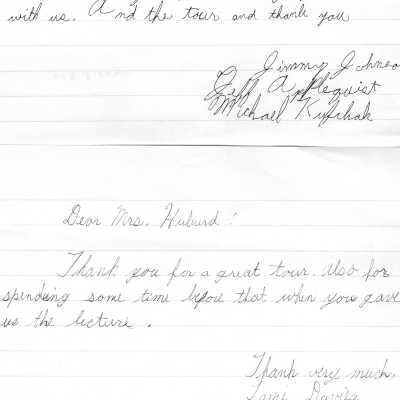 with us. And the tour and thank you
Jimmy Johnso
Jeff Applequist
Michael
Dear Mrs. :
Thank you for a great tour. Also for
spending some time before that when you gave
us the lecture.
Thank very much,
Tami Davila